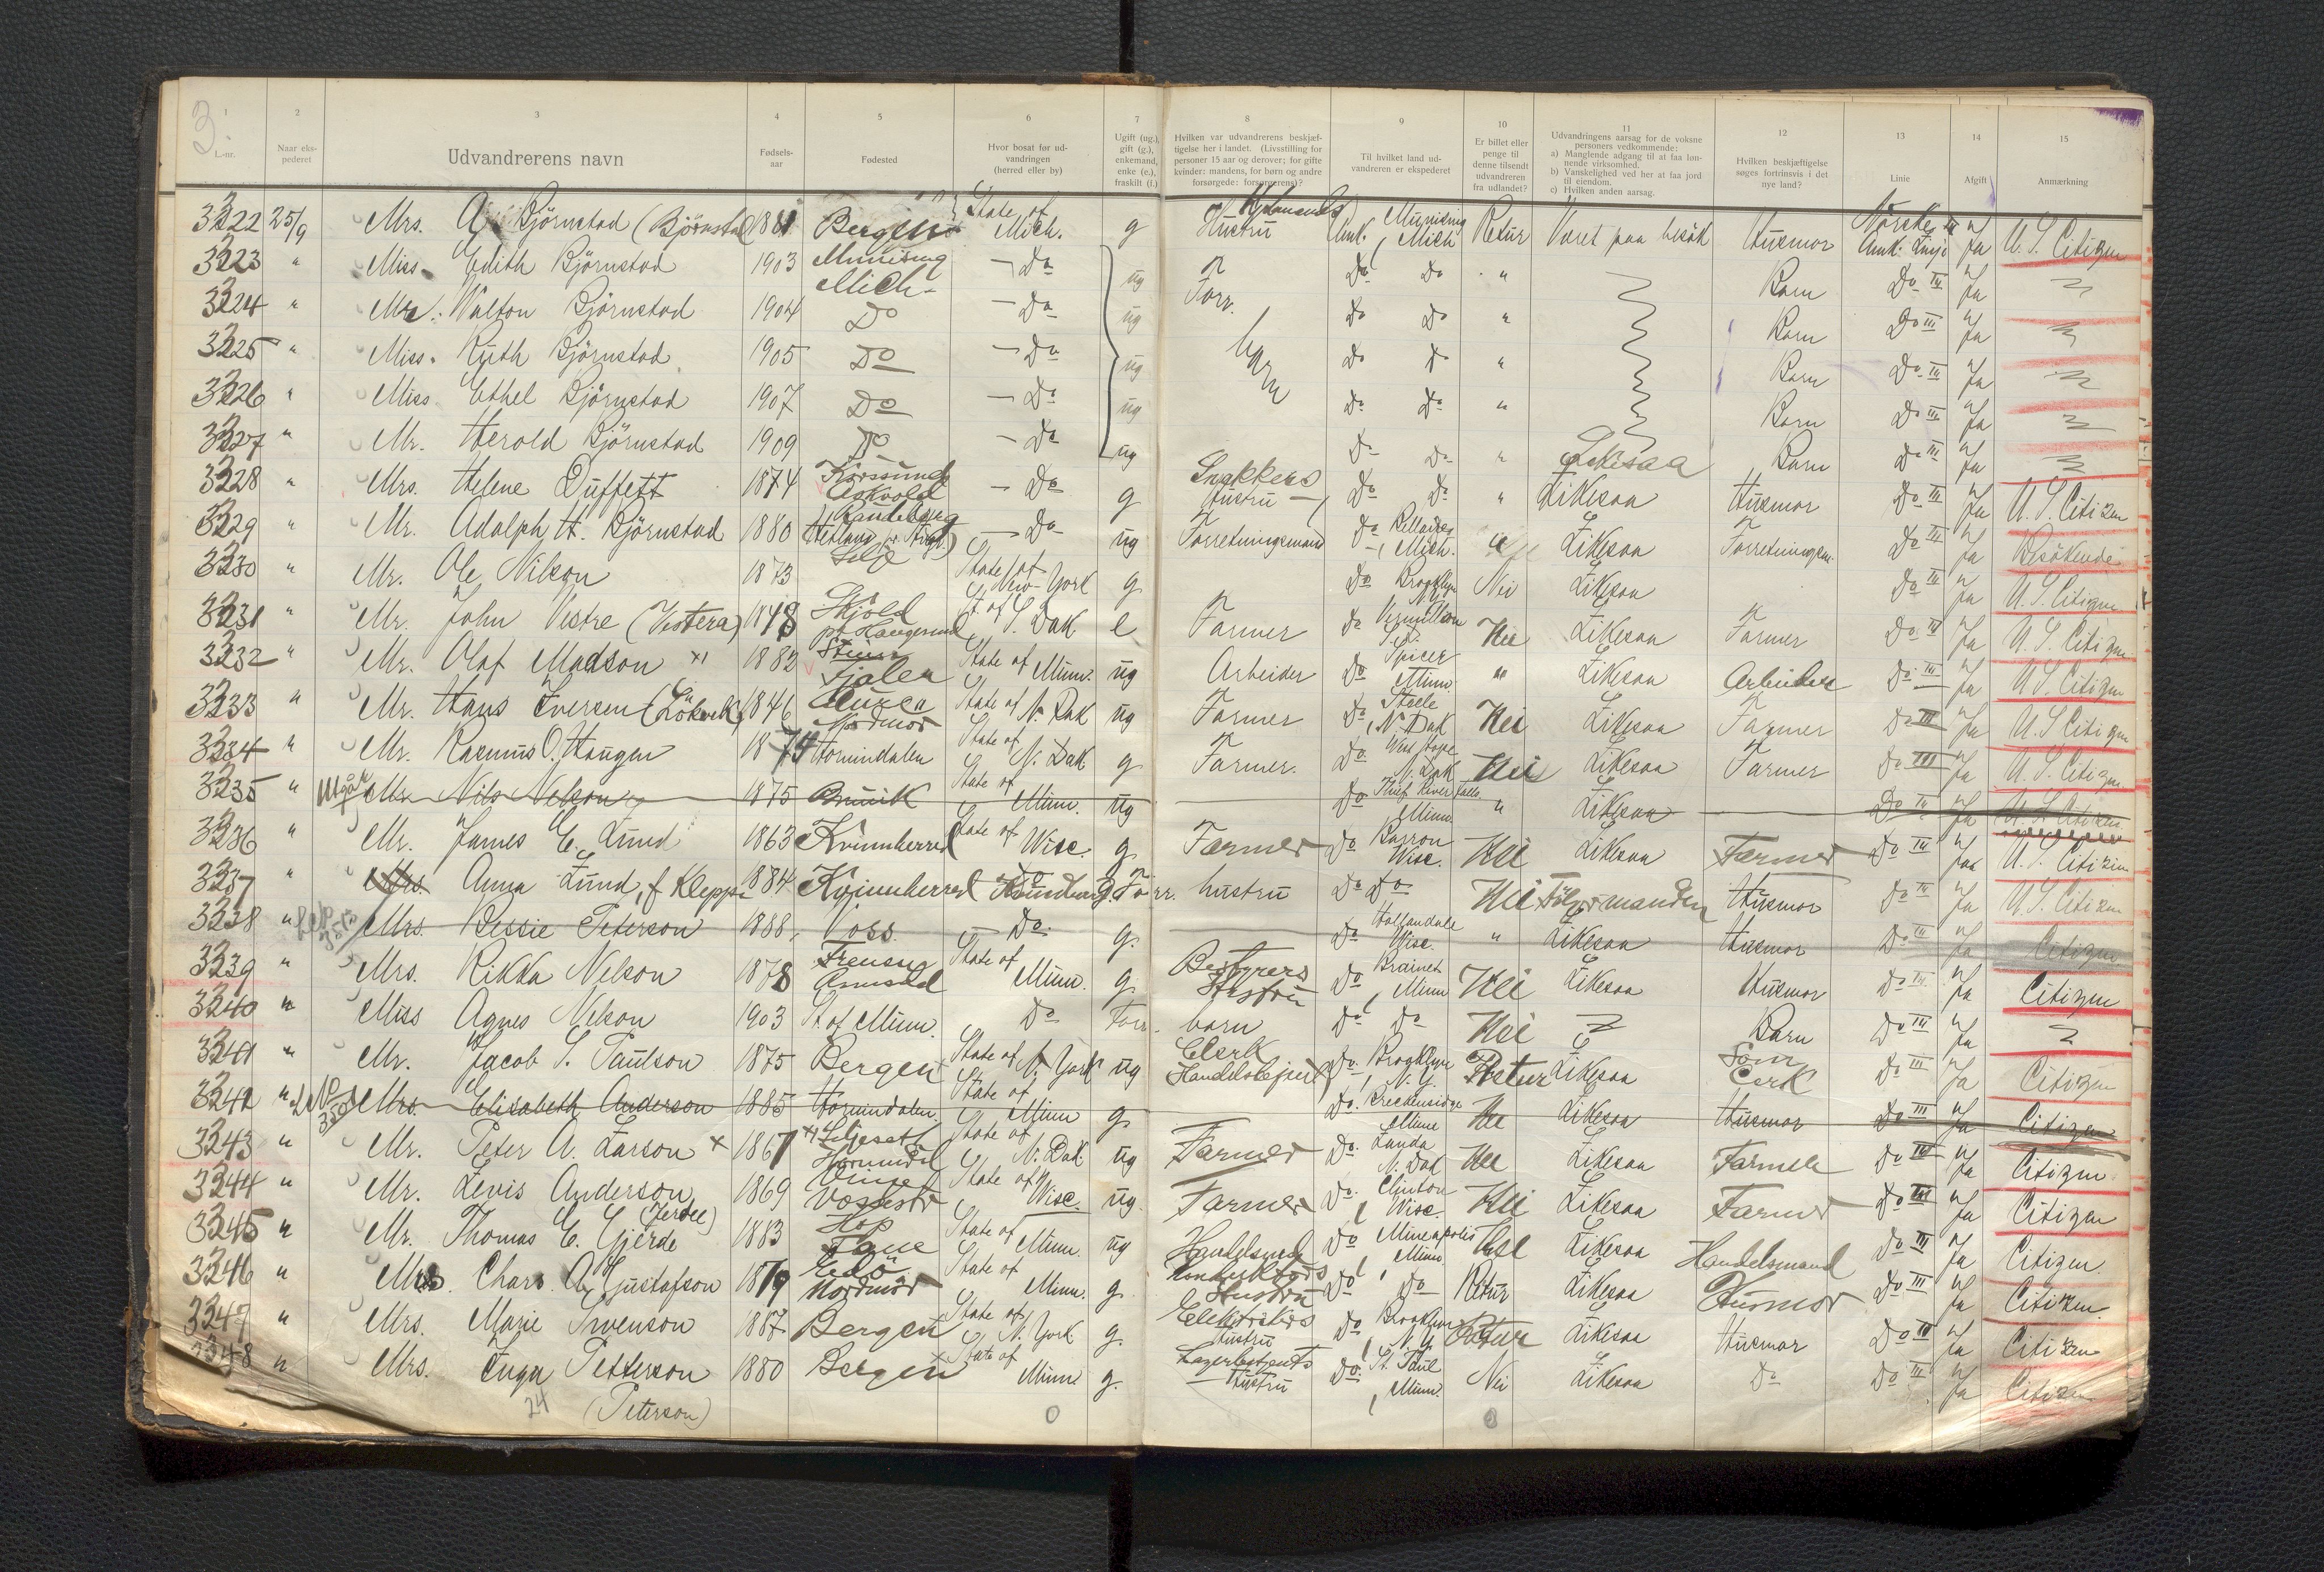 3
1
L.-nr.
2
Naar eks-
pederet
3
Udvandrerens navn
4
Fødsels-
aar
5
Fødested
6
Hvor bosat før ud-
vandringen
(herred eller by)
7
Ugift (ug.),
gift (g.),
enkemand,
enke (e.),
fraskilt (f.)
8
Hvilken var udvandrerens beskjæf-
tigelse her i landet. (Livsstilling for
personer 15 aar og derover; for gifte
kvinder: mandens, for børn og andre
forsørgede: forsørgerens)?
9
Til hvilket land ud-
vandreren er ekspederet
10
Er billet eller
penge til
denne tilsendt
udvandreren
fra udlandet?
11
Udvandringens aarsag for de voksne
personers vedkommende:
a) Manglende adgang til at faa løn-
nende virksomhed.
b) Vanskelighed ved her at faa jord
til eiendom.
c) Hvilken anden aarsag.
12
Hvilken beskjæftigelse
søges fortrinsvis i det
nye land?
13
Linie
14
Afgift
15
Anmærkning
3222 25/9 Mrs. A. Björnstad (Björnstad) 1881 Bergen State of Mich. g Hustru Amk. Munising Mich Retur Været paa besök Husmor Norske Amk. Linje III Ja U.S. Citizen
3223 " Miss. Edith Björnstad 1903 Munising Mich. — Do ug Forr. Do Do " Barn Do III Ja
3224 " Mr. Walton Björnstad 1904 Do — Do ug barn Do Do " Barn Do III Ja
3225 " Miss. Ruth Björnstad 1905 Do — Do ug Do Do " Barn Do III Ja
3226 " Miss Ethel Björnstad 1907 Do — Do ug Do Do " Barn Do III Ja
3227 " Mr. Herold Björnstad 1909 Do — Do ug Do Do " Likesaa Barn Do III Ja
3228 " Mrs. Helene Duffett 1874 Korssund Askvold — Do g Snekkers Hustru Do Do " Likesaa Husmor Do III Ja U.S. Citizen
3229 " Mr. Adolph H. Björnstad 1880 Randeberg Hetland — Do ug Forretningsmand Do Mich. " Likesaa Forretningsm. Do III Ja Besökende
3230 " Mr. Ole Nilson 1873 State of New-York g Do Brooklyn N.Y. Nei Likesaa Do III Ja U.S. Citizen
3231 " Mr. John Vestre (Vestera) 1848 Skjold pr Haugesund St. of S. Dak e Farmer Do Vermillion S.D. Nei Likesaa Farmer Do III Ja U.S. Citizen
3232 " Mr. Olaf Madson x) 1882 Fjaler State of Minn. ug Arbeider Do Spicer Minn. " Likesaa Arbeider Do III Ja U.S. Citizen
3233 " Mr. Hans Iversen (Lökvik) 1846 Aure Nordmör State of N. Dak ug Farmer Do Steele N. Dak Nei Likesaa Farmer Do III Ja U.S. Citizen
3234 " Mr. Rasmus O. Haugen 1874 Hornindalen State of N. Dak g Farmer. Do West Hope N. Dak Nei Likesaa Farmer Do III Ja U.S. Citizen
3235 " Utgår Mr. Nils Nelson 1875 State of Minn. ug Do Thief River Falls Minn " Likesaa Do III Ja U.S. Citizen
3236 " Mr. James E. Lund 1863 Kvinnherred State of Wisc. g Farmer Do Barron Wisc. Nei Likesaa Farmer Do III Ja U.S. Citizen
3237 " Mrs. Anna Lund, f Kleppe 1884 Kvinnherred Do g Forr. hustru Do Do Nei Följer manden Husmor Do III Ja U.S. Citizen
3238 " Mrs. Bessie Peterson 1888 Voss — Do g. Do Hollandale Wisc. " Likesaa Husmor Do III Ja Citizen
3239 " Mrs. Rikka Nelson 1878 State of Minn. g Bestyrers Hustru Do Minn Nei Likesaa Husmor Do III Ja Citizen
3240 " Miss Agnes Nelson 1903 St. of Minn. Do Forr. barn Do Do Nei Barn Do III Ja
3241 " Mr. Jacob S. Paulson 1875 Bergen State of N. York ug Clerk Handelsbetjent Do Brooklyn N.Y. Retur Likesaa Som Clerk Do III Ja Citizen
3242 " Mrs. Elisabeth Anderson 1885 Hornindalen State of Minn g Do Breckenridge Minn Nei Likesaa Husmor Do III Ja Citizen
3243 " Mr. Peter A. Larson x 1867 x) Liljesett Hornindal State of N. Dak ug Farmer Do Landa N. Dak Nei Likesaa Farmer Do III Ja Citizen
3244 " Mr. Levis Anderson 1869 Vinje Vossestr State of Wisc. ug. Farmer Do. Clinton Wisc. Nei Likesaa Farmer Do III Ja Citizen
3245 " Mr. Thomas E. Gjerde (Jerdee) 1883 Hop Fane State of Minn. ug Handelsmand Do Mineapolis Minn. Nei Likesaa Handelsmand Do III Ja Citizen
3246 " Mrs. Chars. A. Gustafson 1879 Edö Nordmör State of Minn. g Konduktörs Hustru Do Do Retur Likesaa Husmor Do III Ja Citizen
3247 " Mrs. Marie Swenson 1887 Bergen State of N. York g. Elektrikers Hustru Do Brooklyn N.Y. Retur Likesaa Husmor Do III Ja Citizen
3248 " Mrs. Inga Petterson 1880 Bergen State of Minn g. Lagerbetjents Hustru Do. St. Paul Minn. Nei Likesaa Do Do III Ja Citizen
24 (Peterson) 0 0